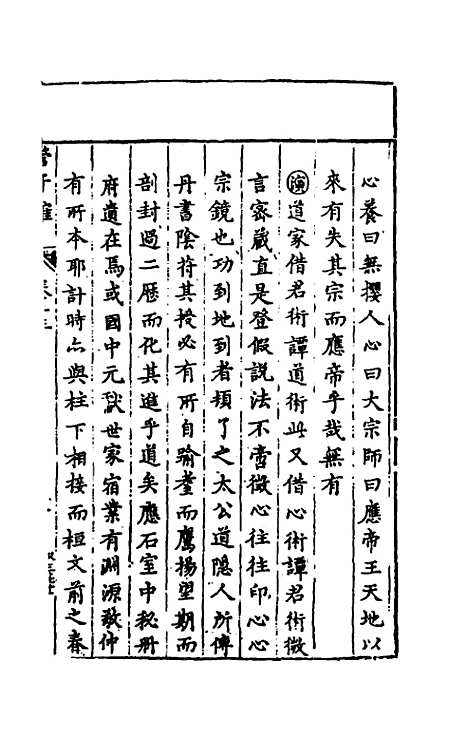 心養曰無攖人心曰大宗師曰應帝王天地以
來有失其宗而應帝乎哉無有
演道家借君術譚道術此又借心術譚君術微
言密藏直是登假說法不啻微心往往印心心
宗鏡也功到地到者頓了之太公道隱人所傳
丹書陰符其授必有所自踰耋而鷹揚望期而
剖封過二歷而化其進乎道矣應石室中秘冊
府遺在焉或國中元獻世家宿業有淵源敎仲
有所本耶計時亦與柱下相接而桓文前之春
管子榷
卷十三